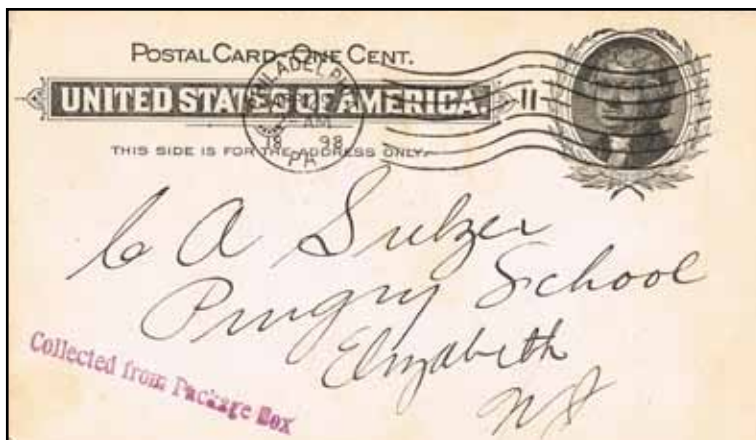 POSTAL CARD—ONE CENT.
UNITED STATES OF AMERICA.
THIS SIDE IS FOR THE ADDRESS ONLY.
PHILADELPHIA
AM
18 98
PA
11
C A Sulzer
Pingry School
Elizabeth
NJ
Collected from Package Box